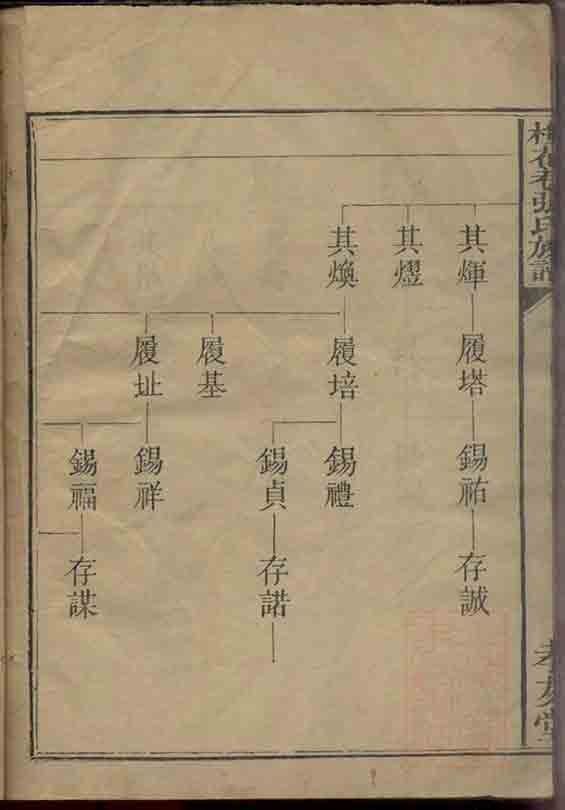 張氏族譜
孝友堂
其煇
履塔
錫祐
存誠
其
其煥
履培
錫禮
錫貞
存諾
履基
履址
錫祥
錫福
存謀